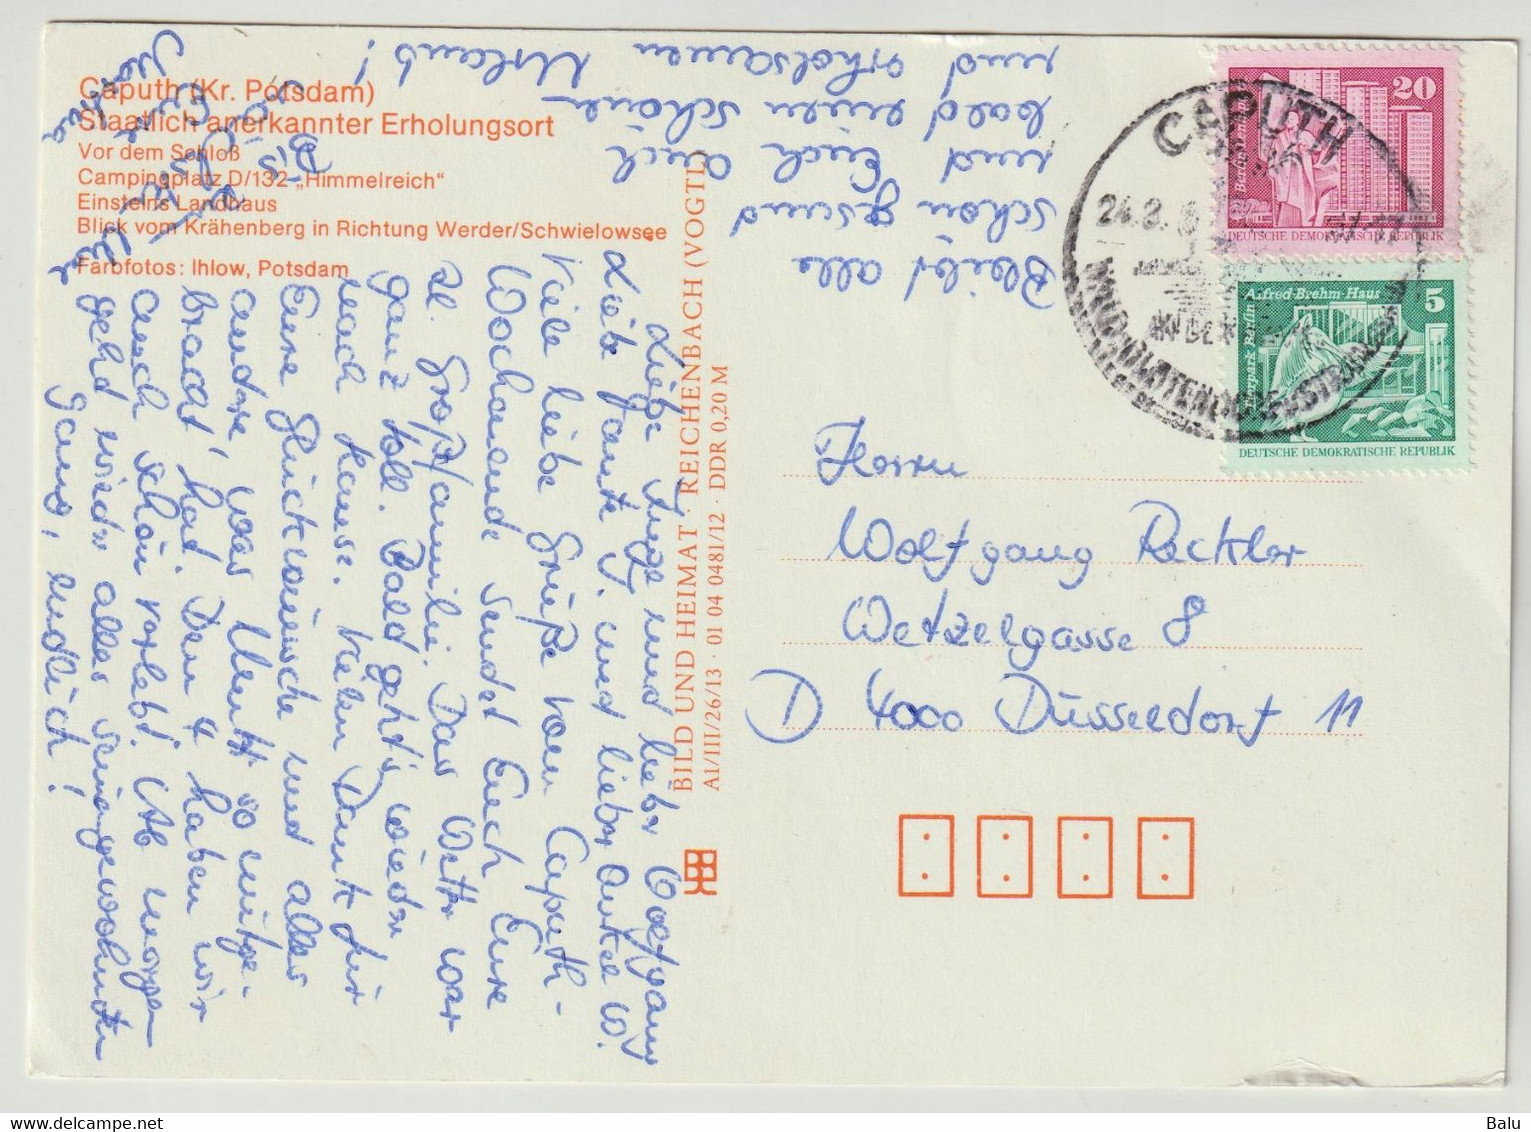 Caputh (Kr. Potsdam)
Staatlich anerkannter Erholungsort
Vor dem Schloß
Campingplatz D/132 „Himmelreich“
Einsteins Landhaus
Blick vom Krähenberg in Richtung Werder/Schwielowsee
Farbfotos: Ihlow, Potsdam
BILD UND HEIMAT · REICHENBACH (VOGTL)
A1/III/26/13 · 01 04 0481/12 · DDR 0,20 M
Liebe Inge und lieber Wolfgang
Liebe Tante I. und lieber Onkel W.
Viele liebe Grüße vom Caputh-
Wochenende sendet Euch Eure
Großfamilie. Das Wetter war
ganz toll. Bald geht's wieder
nach Hause. Vielen Dank für
Eure Glückwünsche und alles
andere, was Ihr so mitge-
bracht habt. Den 4. haben wir
auch schön verlebt. Ab morgen
geht wieder alles seinen gewohnten
Gang, endlich!
Bleibt alle
schön gesund
und Euch auch
bald einen schönen
und erholsamen Urlaub!
CAPUTH
24.8.
20
DEUTSCHE DEMOKRATISCHE REPUBLIK
Alfred-Brehm-Haus
5
Tierpark Berlin
DEUTSCHE DEMOKRATISCHE REPUBLIK
Herrn
Wolfgang Reckler
Wetzelgasse 8
D 4000 Düsseldorf 11
Balu